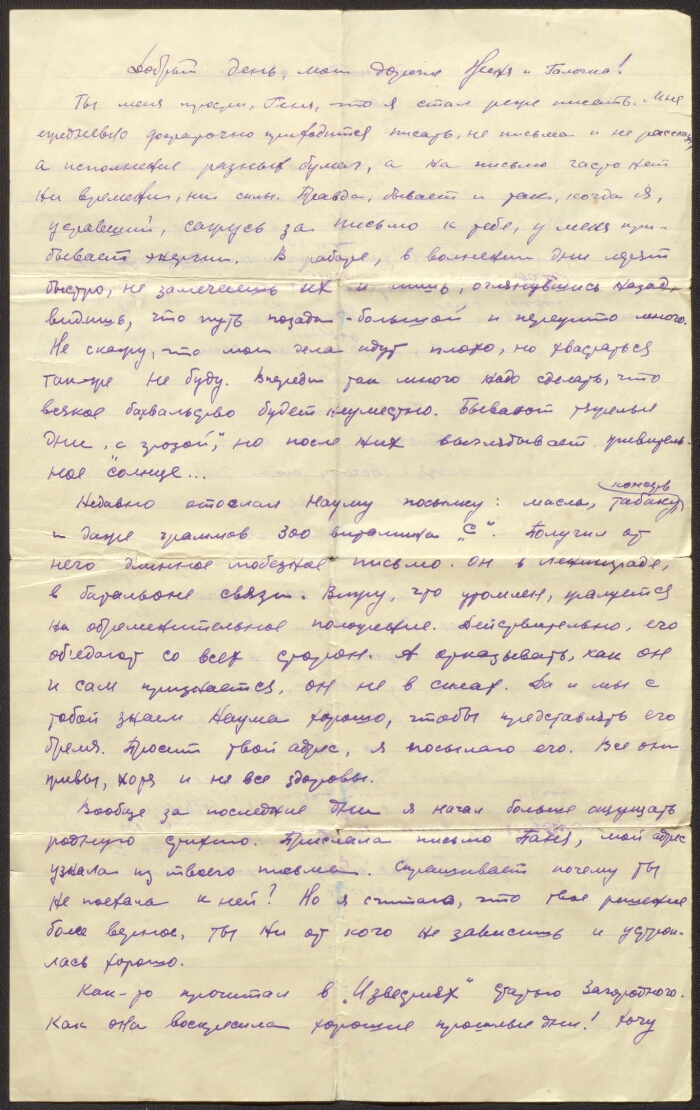 Добрый день, мои дорогие Женя и Галочка!
Ты меня прости, Геня, что я стал реже писать. Мне
ежедневно достаточно приходится писать, не письма и не рассказы,
а исполнения разных бумаг, а на письмо часто нет
ни времени, ни силы. Правда, бывает и так, когда я,
уставший, сажусь за письмо к тебе, у меня при-
бывает энергии. В работе, в волнении дни летят
быстро, не замечаешь их и лишь, оглянувшись назад,
видишь, что путь позади большой и пережито много.
Не скажу, что мои дела идут плохо, но хвастаться
также не буду. Впереди так много надо сделать, что
всякое бахвальство будет неуместно. Бывают тяжелые
дни, "с грозой", но после них выглядывает удивитель-
ное "солнце"...
Недавно отослал Науму посылку: масла, консерв, табаку
и даже граммов 300 витамина "С". Получил от
него длинное любезное письмо. Он в Ленинграде,
в батальоне связи. Вижу, что утомлен, жалуется
на обременительное положение. Действительно, его
объедают со всех сторон. А отказывать, как он
и сам признается, он не в силах. Да и мы с
тобой знаем Наума хорошо, чтобы представлять его
бремя. Просит твой адрес, я посылаю его. Все они
живы, хотя и не все здоровы.
Вообще за последние дни я начал больше ощущать
родную стихию. Прислала письмо Таня, мой адрес
узнала из твоего письма. Спрашивает почему ты
не поехала к ней? Но я считаю, что твое решение
более верное, ты ни от кого не зависишь и устрои-
лась хорошо.
Как-то прочитал в "Известиях" статью Загородного.
Как она воскресила хорошие прошлые дни! Хочу